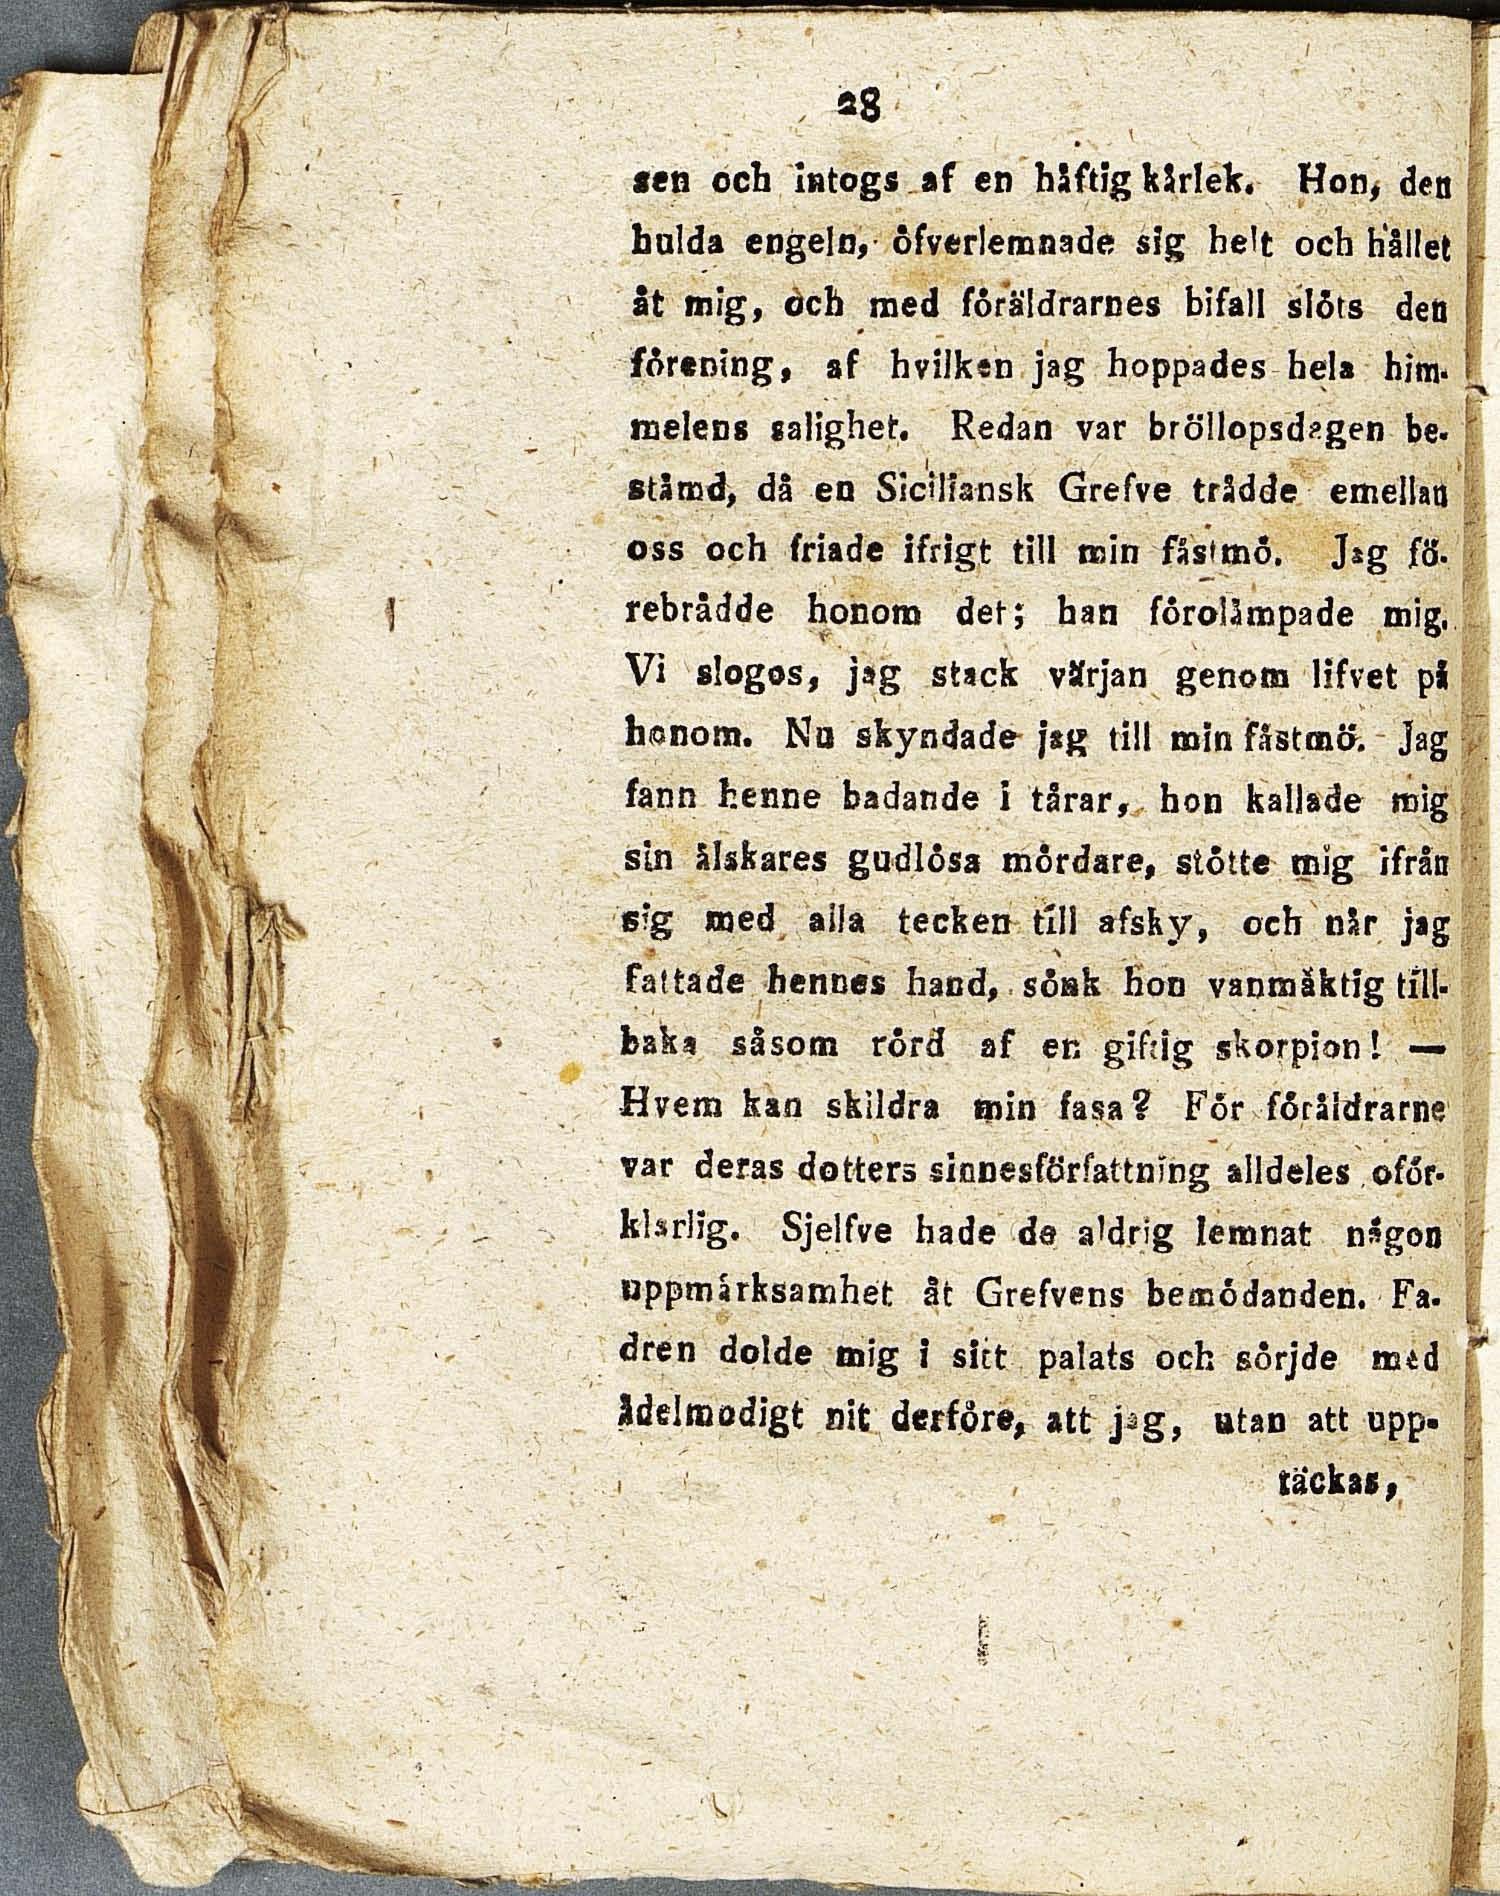 28
sen och intogs af en häftig kärlek. Hon, den
hulda engeln, öfverlemnade sig helt och hållet
åt mig, och med föräldrarnes bifall slöts den
förening, af hvilken jag hoppades hela him-
melens salighet. Redan var bröllopsdagen be-
stämd, då en Siciliansk Grefve trädde emellan
oss och friade ifrigt till min fästmö. Jag fö-
rebrådde honom det; han förolämpade mig.
Vi slogos, jag stack värjan genom lifvet på
honom. Nu skyndade jag till min fästmö. Jag
fann henne badande i tårar, hon kallade mig
sin älskares gudlösa mördare, stötte mig ifrån
sig med alla tecken till afsky, och när jag
fattade hennes hand, sönk hon vanmäktig till-
baka såsom rörd af en giftig skorpion! —
Hvem kan skildra min fasa? För föräldrarne
var deras dotters sinnesförfattning alldeles oför-
klarlig. Sjelfve hade de aldrig lemnat någon
uppmärksamhet åt Grefvens bemödanden. Fa-
dren dolde mig i sitt palats och sörjde med
ädelmodigt nit derföre, att jag, utan att upp-
täckas,